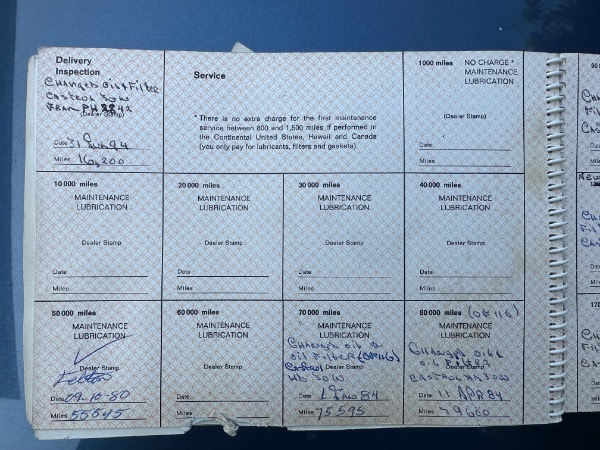 Delivery
Inspection
Changed Oil & Filter
Castrol 30W
Fram PH2842
(Dealer Stamp)
Date
Miles 16,200
Service
* There is no extra charge for the first maintenance
service between 800 and 1,500 miles if performed
in the Continental United States, Hawaii and Canada
(you only pay for lubricants, filters and gaskets).
1000 miles NO CHARGE *
MAINTENANCE
LUBRICATION
(Dealer Stamp)
Date
Miles
10 000 miles
MAINTENANCE
LUBRICATION
Dealer Stamp
Date
Miles
20 000 miles
MAINTENANCE
LUBRICATION
Dealer Stamp
Date
Miles
30 000 miles
MAINTENANCE
LUBRICATION
Dealer Stamp
Date
Miles
40 000 miles
MAINTENANCE
LUBRICATION
Dealer Stamp
Date
Miles
50 000 miles
MAINTENANCE
LUBRICATION
Dealer Stamp
Date 09-10-80
Miles 55545
60 000 miles
MAINTENANCE
LUBRICATION
Dealer Stamp
Date
Miles
70 000 miles
MAINTENANCE
LUBRICATION
Changd oil &
oil Filter (OF116)
Castrol Dealer Stamp
HD 30W
Date 84
Miles 75595
80 000 miles (OF116)
MAINTENANCE
LUBRICATION
Changd oil &
oil Filter
Dealer Stamp
Castrol 30W
Date 11 APR 84
Miles 79600
90
170